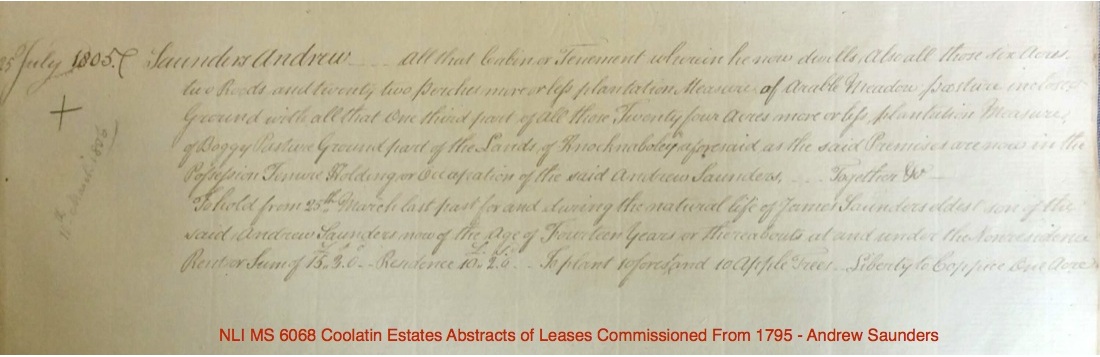 25 July 1805. Saunders Andrew ___ All that Cabin or Tenement wherein he now dwells, Also all those six Acres
two Roods and twenty two perches more or less plantation Measure of Arable Meadow pasture inclosed
Ground with all that One third part of all those Twenty four Acres more or less, plantation Measure,
of Boggy Pasture Ground part of the Lands of Knocknaboley aforesaid as the said Premises are now in the
Possession Tenure Holding or Occupation of the said Andrew Saunders, __ Together &c __
To hold from 25th March last past for and during the natural life of James Saunders eldest son of the
said Andrew Saunders now of the Age of Fourteen Years or thereabouts at and under the Nonresidence
Rent or Sum of 15. 3. 0 _ Residence 10. 2. 0 _ To plant 10 forest and 10 Apple Trees _ Liberty to Coppice One Acre
March 1806
NLI MS 6068 Coolatin Estates Abstracts of Leases Commissioned From 1795 - Andrew Saunders